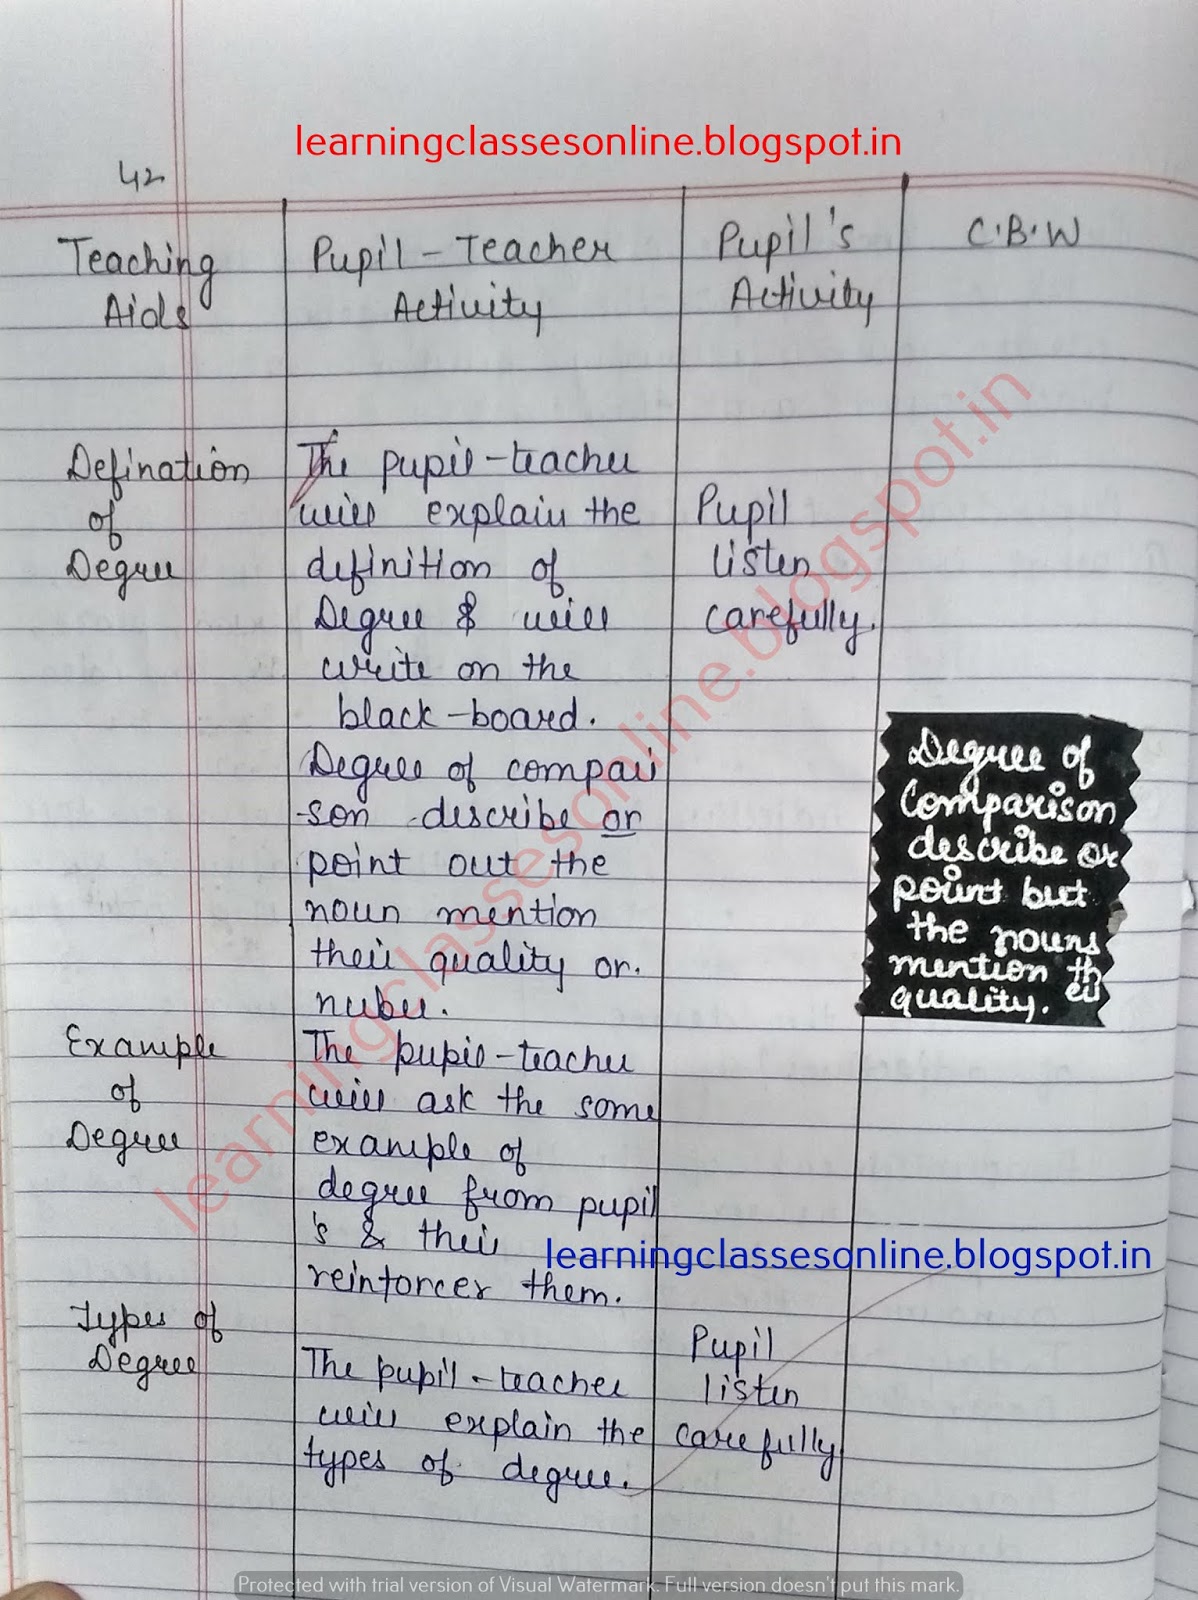 learningclassesonline.blogspot.in
42
Teaching
Aids
Pupil - Teacher
Activity
Pupil's
Activity
C.B.W
Defination
of
Degree
The pupil-teacher
will explain the
definition of
Degree & will
write on the
black-board.
Degree of compari
-son describe or
point out the
noun mention
their quality or
nuber.
Pupil
listen
carefully.
Degree of
Comparison
describe or
point but
the nouns
mention th
eir
quality.
Example
of
Degree
The pupil-teacher
will ask the some
example of
degree from pupil
's & their
reinforcer them.
learningclassesonline.blogspot.in
Types of
Degree
The pupil-teacher
will explain the
types of degree.
Pupil
listen
carefully
learningclassesonline.blogspot.in
Protected with trial version of Visual Watermark. Full version doesn't put this mark.